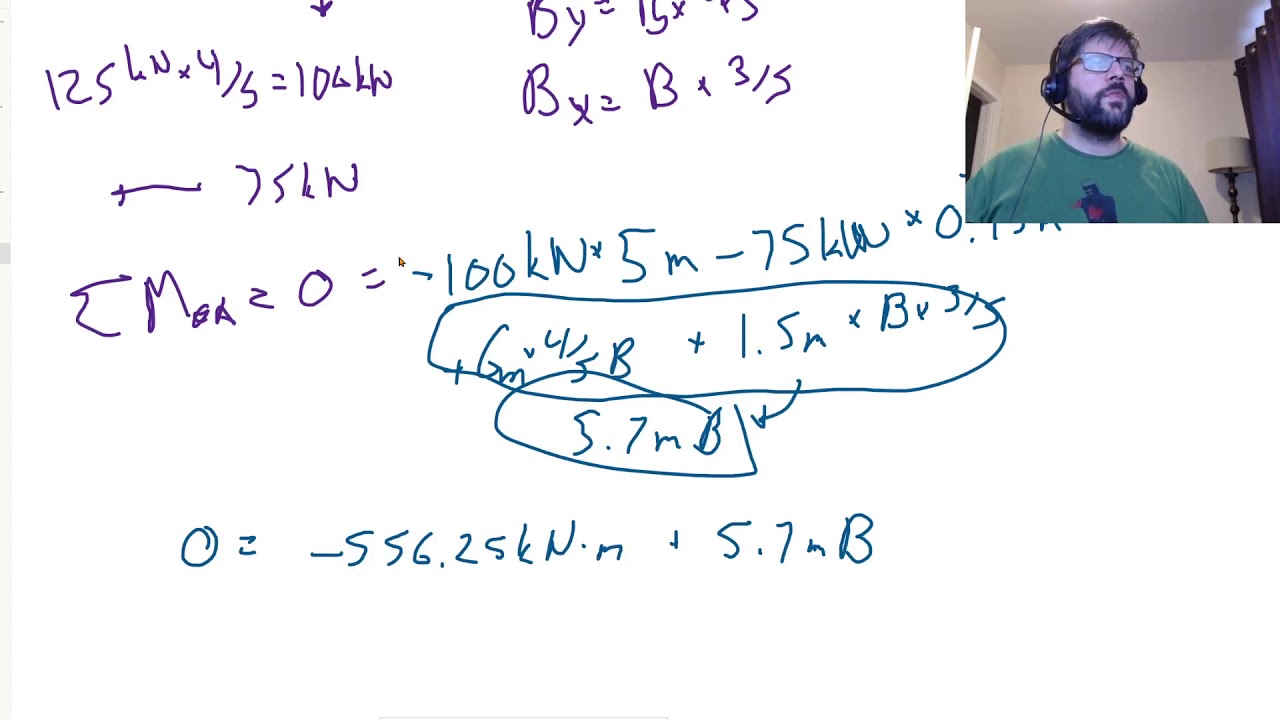 By = 15 x 4/5
125 kN x 4/5 = 100 kN
Bx = B x 3/5
75 kN
Σ M@A = 0 = -100 kN x 5 m - 75 kN x 0.75
+ 6m x 4/5 B + 1.5 m x B x 3/5
5.7 m B
0 = -556.25 kN·m + 5.7 m B